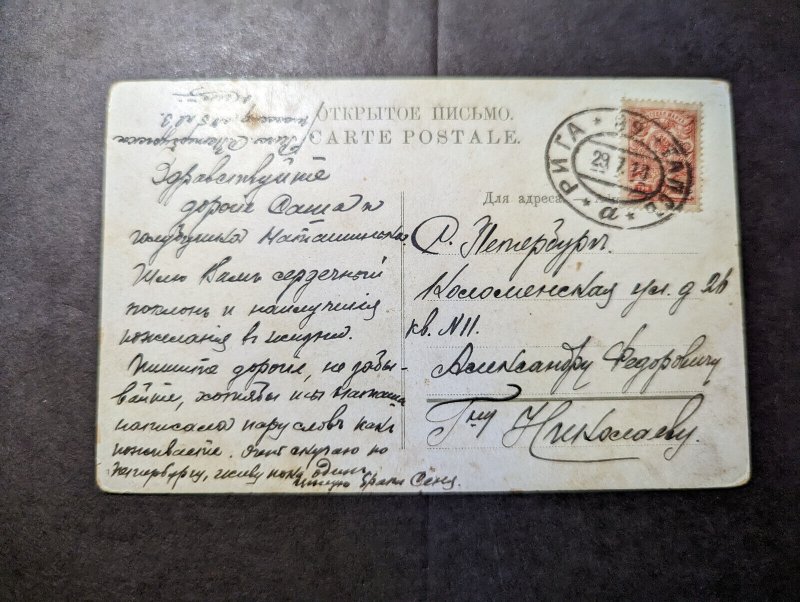 ОТКРЫТОЕ ПИСЬМО.
CARTE POSTALE.
Для адреса
РИГА * 89 * ГАЛ
29 7 11
а
Здравствуйте
дорогие Саша и
голубушка
Шлю Вамъ сердечный
поклонъ и наилучшія
пожеланія в жизни.
Пишите дорогие, не забы-
вайте, хотябы ты Наташа
написала пару словъ какъ
поживаете. скучаю по
Петербургу, живу пока один
целую
С. Петербургъ.
Коломенская ул. д 26
кв. N11.
Александру Федоровичу
Гну Николаеву.